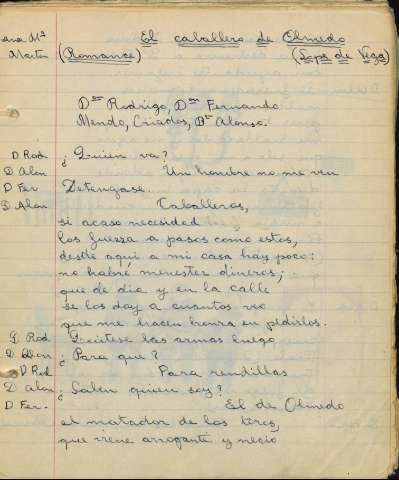 Ana Mª El caballero de Olmedo
Martín (Romance) (Lope de Vega)
Dⁿ Rodrigo, Dⁿ Fernando
Mendo, Criados, Dⁿ Alonso.
D Rod ¿Quien va?
D Alon Un hombre no me ven
D Fer Detengase.
D Alon Caballeros,
si acaso necesidad
los fuerza a pasos como estos,
desde aquí a mi casa hay poco:
no habré menester dineros;
que de dia y en la calle
se los doy a cuantos veo
que me hacen honra en pedirlos.
D Rod Quitese las armas luego
D Alon ¿Para que?
D Rod Para rendillas
D Alon ¿Saben quien soy?
D Fer. El de Olmedo
el matador de los toros,
que viene arrogante y necio